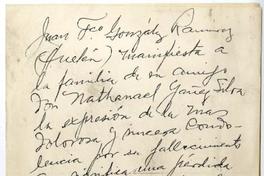 Juan Fco González Ramírez
(Huelén) manifiesta a
la familia de su amigo
Don Nathanael Yañez Silva
la expresión de la mas
dolorosa y sincera Condo-
lencia por su fallecimiento
una pérdida